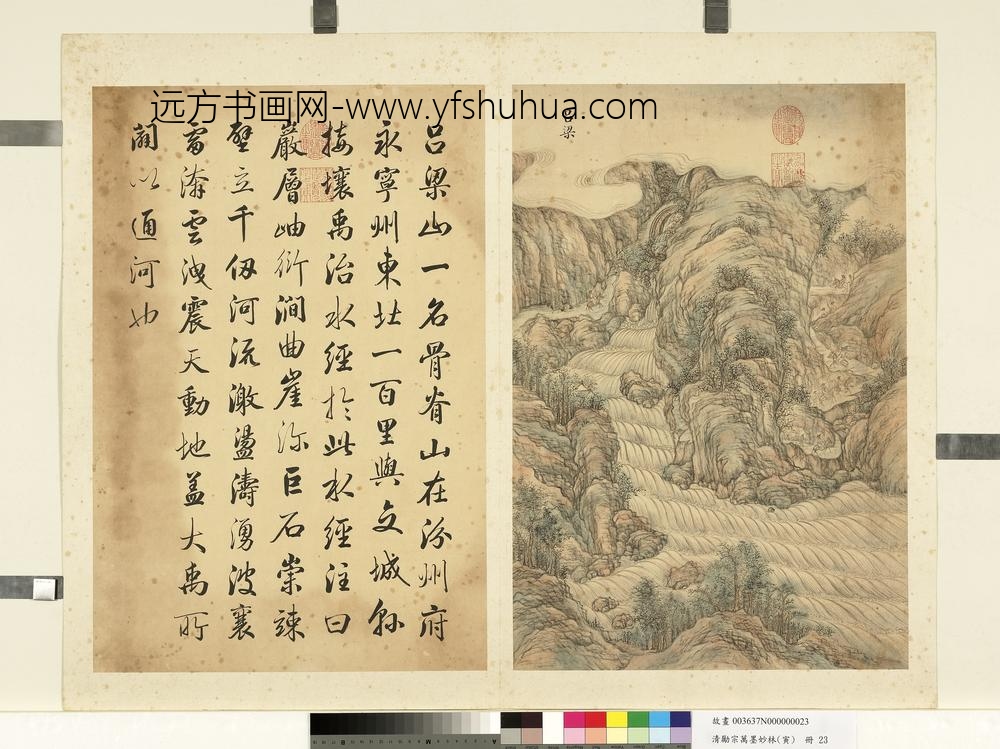 远方书画网-www.yfshuhua.com
吕梁
吕梁山一名骨脊山在汾州府
永寧州東北一百里與文城縣
接壤禹治水經於此水經注曰
巖層岫衍澗曲崖深巨石崇竦
壁立千仞河流激盪濤湧波襄
雷渀雲洩震天動地蓋大禹所
闢以通河也
故畫 003637N000000023
清勵宗萬墨妙珠林(寅) 冊 23